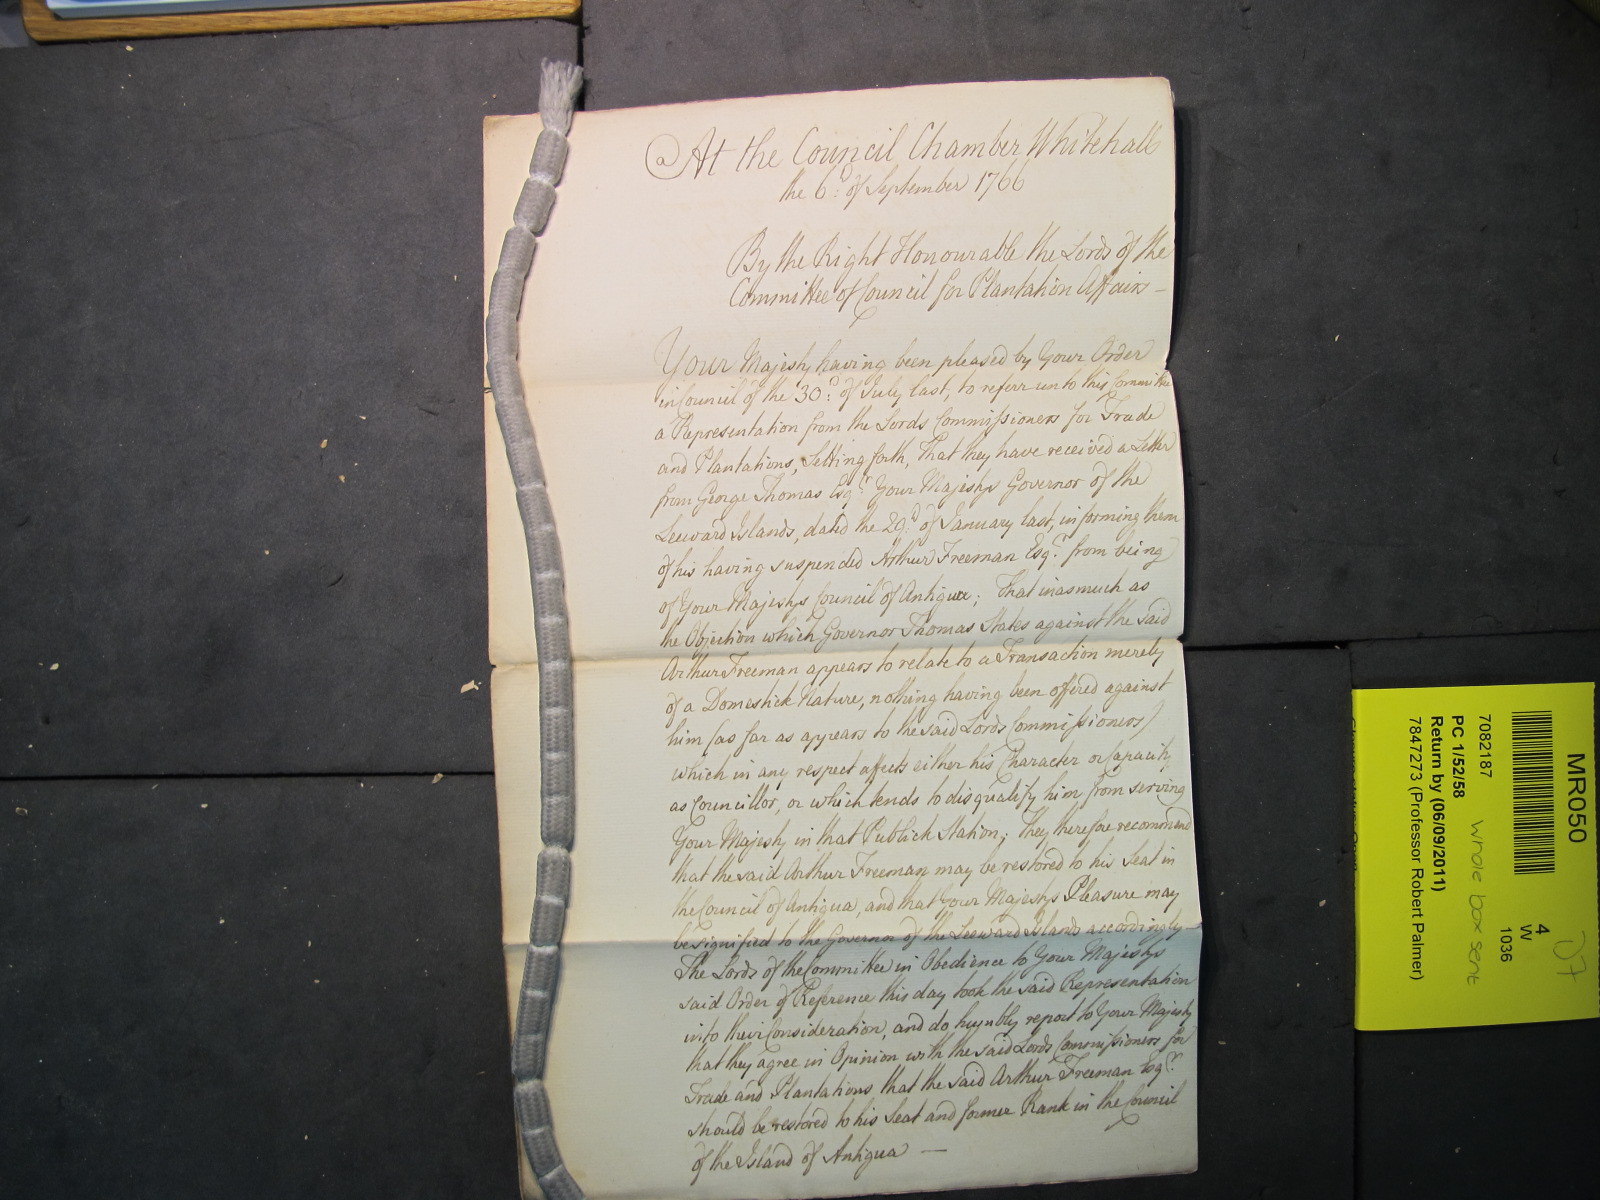 At the Council Chamber Whitehall
the 6.d of September 1766
By the Right Honourable the Lords of the
Committee of Council for Plantation Affairs —
Your Majesty having been pleased by Your Order
in Council of the 30.th of July last, to referr unto this Committee
a Representation from the Lords Commissioners for Trade
and Plantations, Setting forth, That they have received a Letter
from George Thomas Esq.r Your Majestys Governor of the
Leeward Islands, dated the 20.th of January last, informing them
of his having suspended Arthur Freeman Esq.r from being
of Your Majestys Council of Antigua; That inasmuch as
the Objection which Governor Thomas States against the said
Arthur Freeman appears to relate to a Transaction merely
of a Domestick Nature, nothing having been offered against
him (as far as appears to the said Lords Commissioners)
which in any respect affects either his Character or Capacity
as Councillor, or which tends to disqualify him from serving
Your Majesty in that Publick Station; They therefore recommend
that the said Arthur Freeman may be restored to his Seat in
the Council of Antigua, and that Your Majestys Pleasure may
be signified to the Governor of the Leeward Islands accordingly —
The Lords of the Committee in Obedience to Your Majestys
said Order of Reference this day took the said Representation
into their Consideration, and do humbly report to Your Majesty
that they agree in Opinion with the said Lords Commissioners for
Trade and Plantations that the said Arthur Freeman Esq.r
should be restored to his Seat and former Rank in the Council
of the Island of Antigua —
MR050
7082187
4
W
1036
PC 1/52/58
whole box sent
Return by (06/09/2011)
7847273 (Professor Robert Palmer)